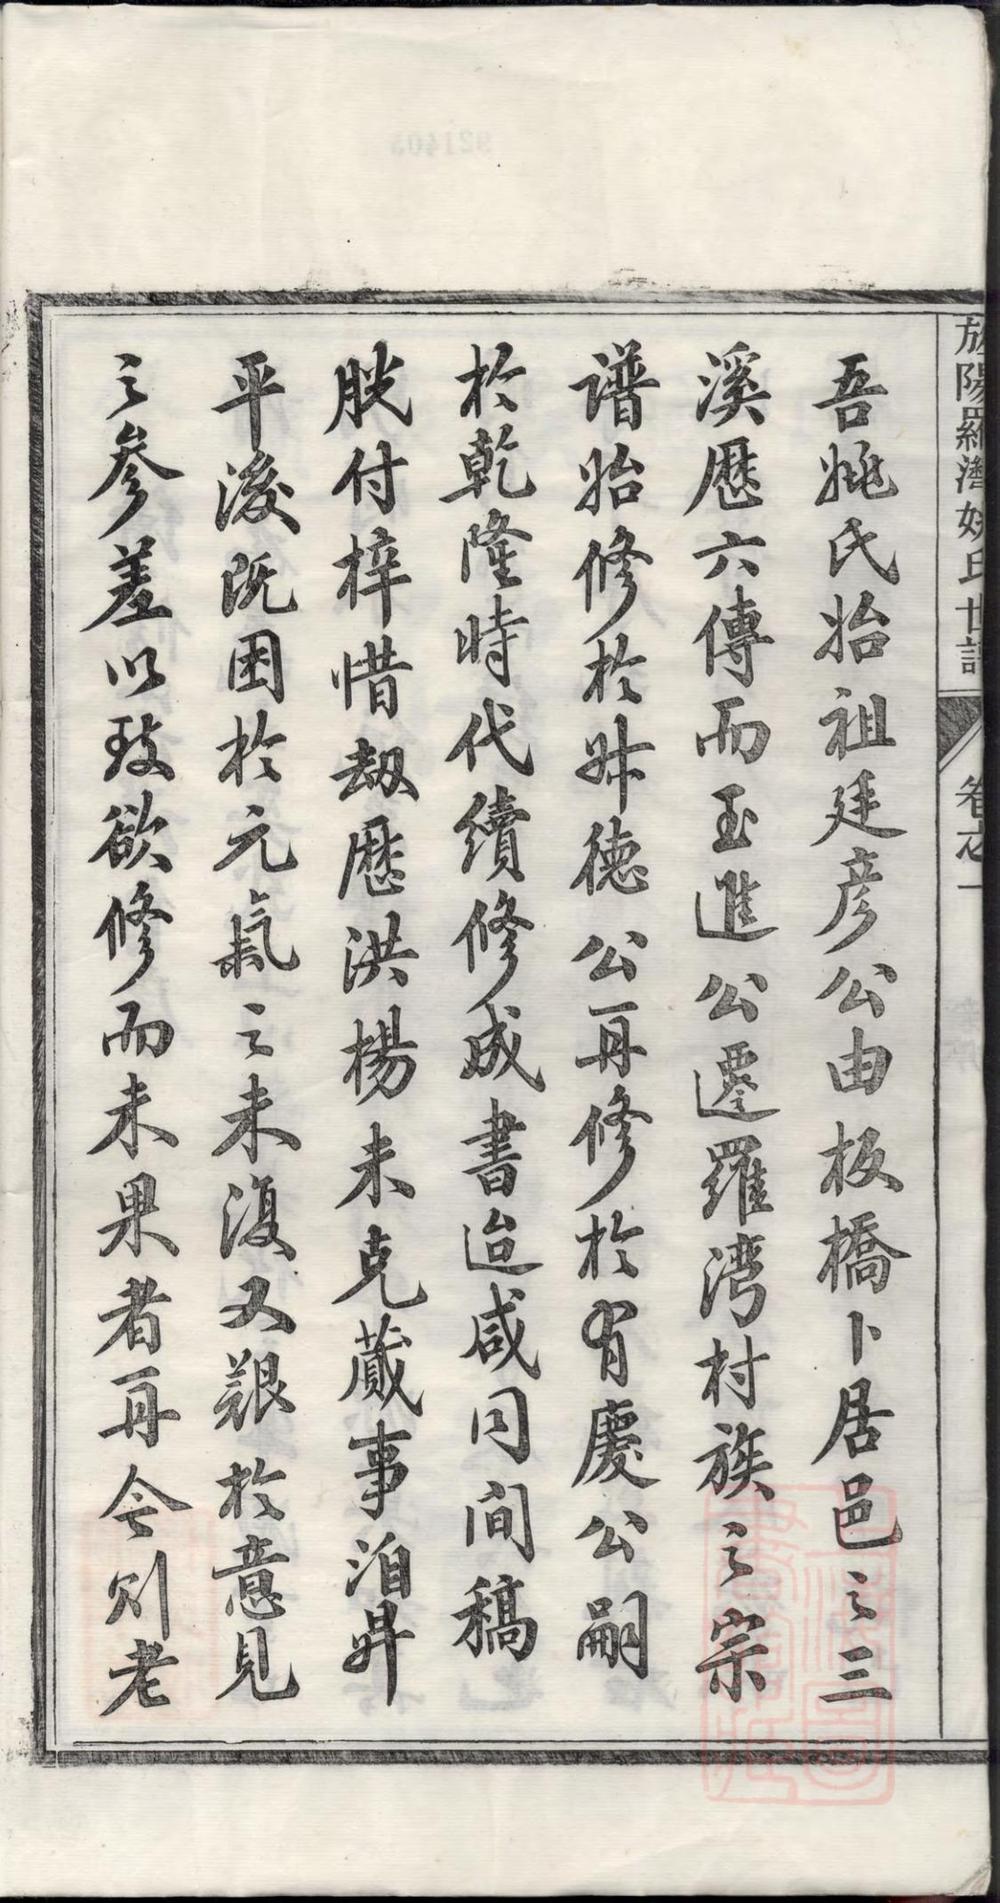 旌陽羅灣姚氏世譜 卷之一
吾姚氏始祖廷彥公由板橋卜居邑之三
溪歷六傳而玉進公遷羅湾村族之宗
譜始修於昇德公再修於有慶公嗣
於乾隆時代續修成書迨咸同间稿
脫付梓惜劫歷洪楊未克蕆事洎昇
平後既困於元氣之未復又艱於意見
之參差以致欲修而未果者再今則老